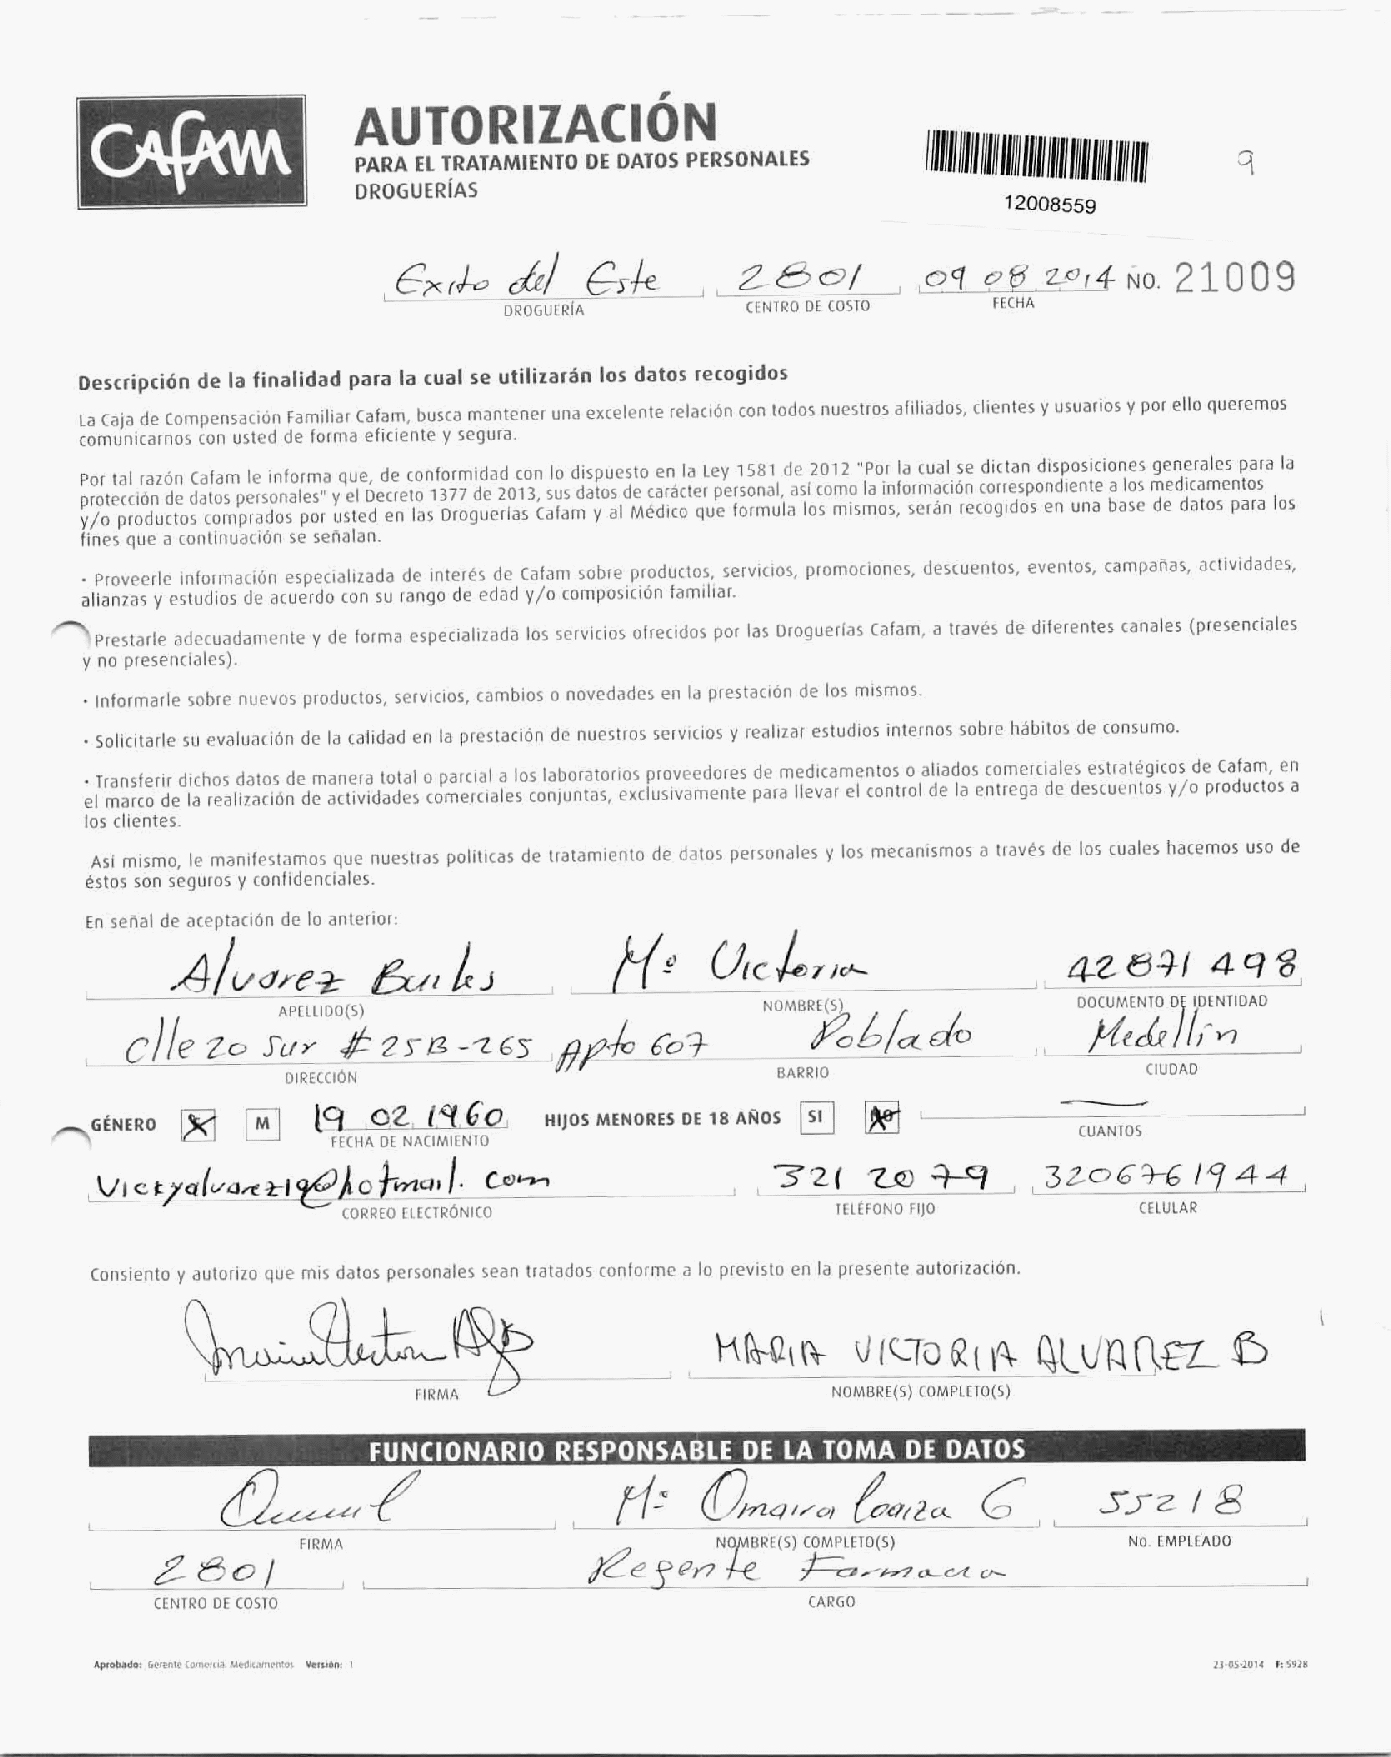 CAFAM
AUTORIZACIÓN
PARA EL TRATAMIENTO DE DATOS PERSONALES
DROGUERÍAS
12008559
9
Exito del Este 2801 09 08 2014 NO. 21009
DROGUERÍA CENTRO DE COSTO FECHA
Descripción de la finalidad para la cual se utilizarán los datos recogidos
La Caja de Compensación Familiar Cafam, busca mantener una excelente relación con todos nuestros afiliados, clientes y usuarios y por ello queremos
comunicarnos con usted de forma eficiente y segura.
Por tal razón Cafam le informa que, de conformidad con lo dispuesto en la Ley 1581 de 2012 "Por la cual se dictan disposiciones generales para la
protección de datos personales" y el Decreto 1377 de 2013, sus datos de carácter personal, así como la información correspondiente a los medicamentos
y/o productos comprados por usted en las Droguerías Cafam y al Médico que formula los mismos, serán recogidos en una base de datos para los
fines que a continuación se señalan.
· Proveerle información especializada de interés de Cafam sobre productos, servicios, promociones, descuentos, eventos, campañas, actividades,
alianzas y estudios de acuerdo con su rango de edad y/o composición familiar.
Prestarle adecuadamente y de forma especializada los servicios ofrecidos por las Droguerías Cafam, a través de diferentes canales (presenciales
y no presenciales).
· Informarle sobre nuevos productos, servicios, cambios o novedades en la prestación de los mismos.
· Solicitarle su evaluación de la calidad en la prestación de nuestros servicios y realizar estudios internos sobre hábitos de consumo.
· Transferir dichos datos de manera total o parcial a los laboratorios proveedores de medicamentos o aliados comerciales estratégicos de Cafam, en
el marco de la realización de actividades comerciales conjuntas, exclusivamente para llevar el control de la entrega de descuentos y/o productos a
los clientes.
Así mismo, le manifestamos que nuestras políticas de tratamiento de datos personales y los mecanismos a través de los cuales hacemos uso de
éstos son seguros y confidenciales.
En señal de aceptación de lo anterior:
Alvarez Mª Victoria 42871498
APELLIDO(S) NOMBRE(S) DOCUMENTO DE IDENTIDAD
clle 20 Sur # 25B-265 Apto 607 Poblado Medellin
DIRECCIÓN BARRIO CIUDAD
GÉNERO M 19 02 1960 HIJOS MENORES DE 18 AÑOS SI
FECHA DE NACIMIENTO CUANTOS
Vickyalvarez19@hotmail.com 321 20 79 3206761944
CORREO ELECTRÓNICO TELÉFONO FIJO CELULAR
Consiento y autorizo que mis datos personales sean tratados conforme a lo previsto en la presente autorización.
MARIA VICTORIA ALVAREZ B
FIRMA NOMBRE(S) COMPLETO(S)
FUNCIONARIO RESPONSABLE DE LA TOMA DE DATOS
Mª Omaira Loaiza G 55218
FIRMA NOMBRE(S) COMPLETO(S) No. EMPLEADO
2801 Regente Farmacia
CENTRO DE COSTO CARGO
Aprobado: Gerente Comercial Medicamentos Versión: 1 23-05-2014 F: 5928